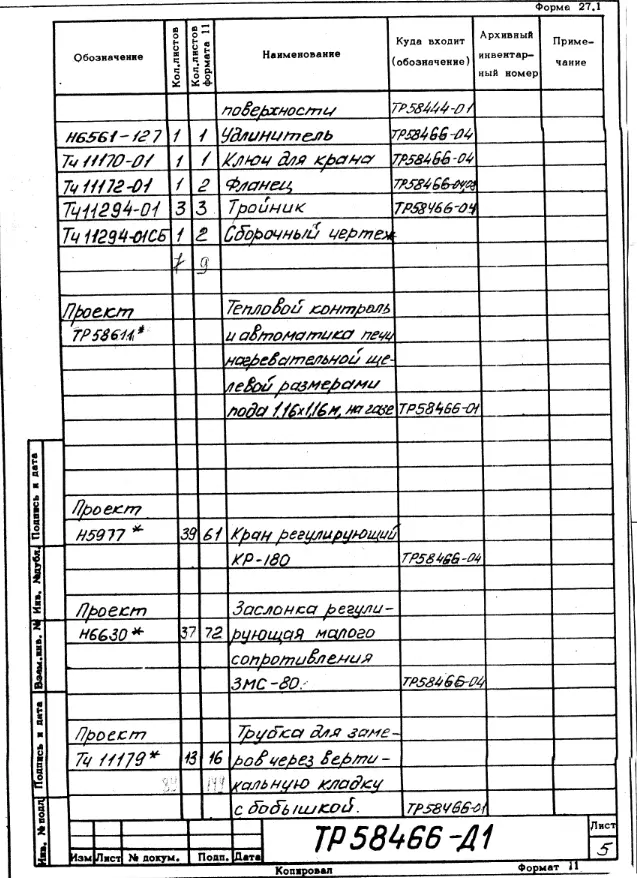 Форма 27.1
Обозначение Кол.листов Кол.листов формата 11 Наименование Куда входит (обозначение) Архивный инвентарный номер Примечание
поверхности ТР58444-01
Н6561-127 1 1 Удлинитель ТР58466-04
Тч 11170-01 1 1 Ключ для крана ТР58466-04
Тч 11172-01 1 2 Фланец ТР58466-04
Тч11294-01 3 3 Тройник ТР58466-04
Тч 11294-01СБ 1 2 Сборочный чертеж
7 9
Проект Тепловой контроль
ТР 58611* и автоматика печи
нагревательной ще-
левой размерами
пода 1,16х1,16м, на газе ТР58466-01
Проект
Н5977 * 39 61 Кран регулирующий
КР-180 ТР58466-04
Проект Заслонка регули-
Н6630 * 37 72 рующая малого
сопротивления
ЗМС-80. ТР58466-04
Проект Трубка для заме-
Тч 11179 * 13 16 ров через верти-
кальную кладку
с бобышкой. ТР58466-01
Подпись и дата
Инв. №дубл.
Взам.инв. №
Подпись и дата
Инв. №подл
Изм Лист № докум. Подп. Дата
ТР 58466-Д1
Лист
5
Копировал Формат 11